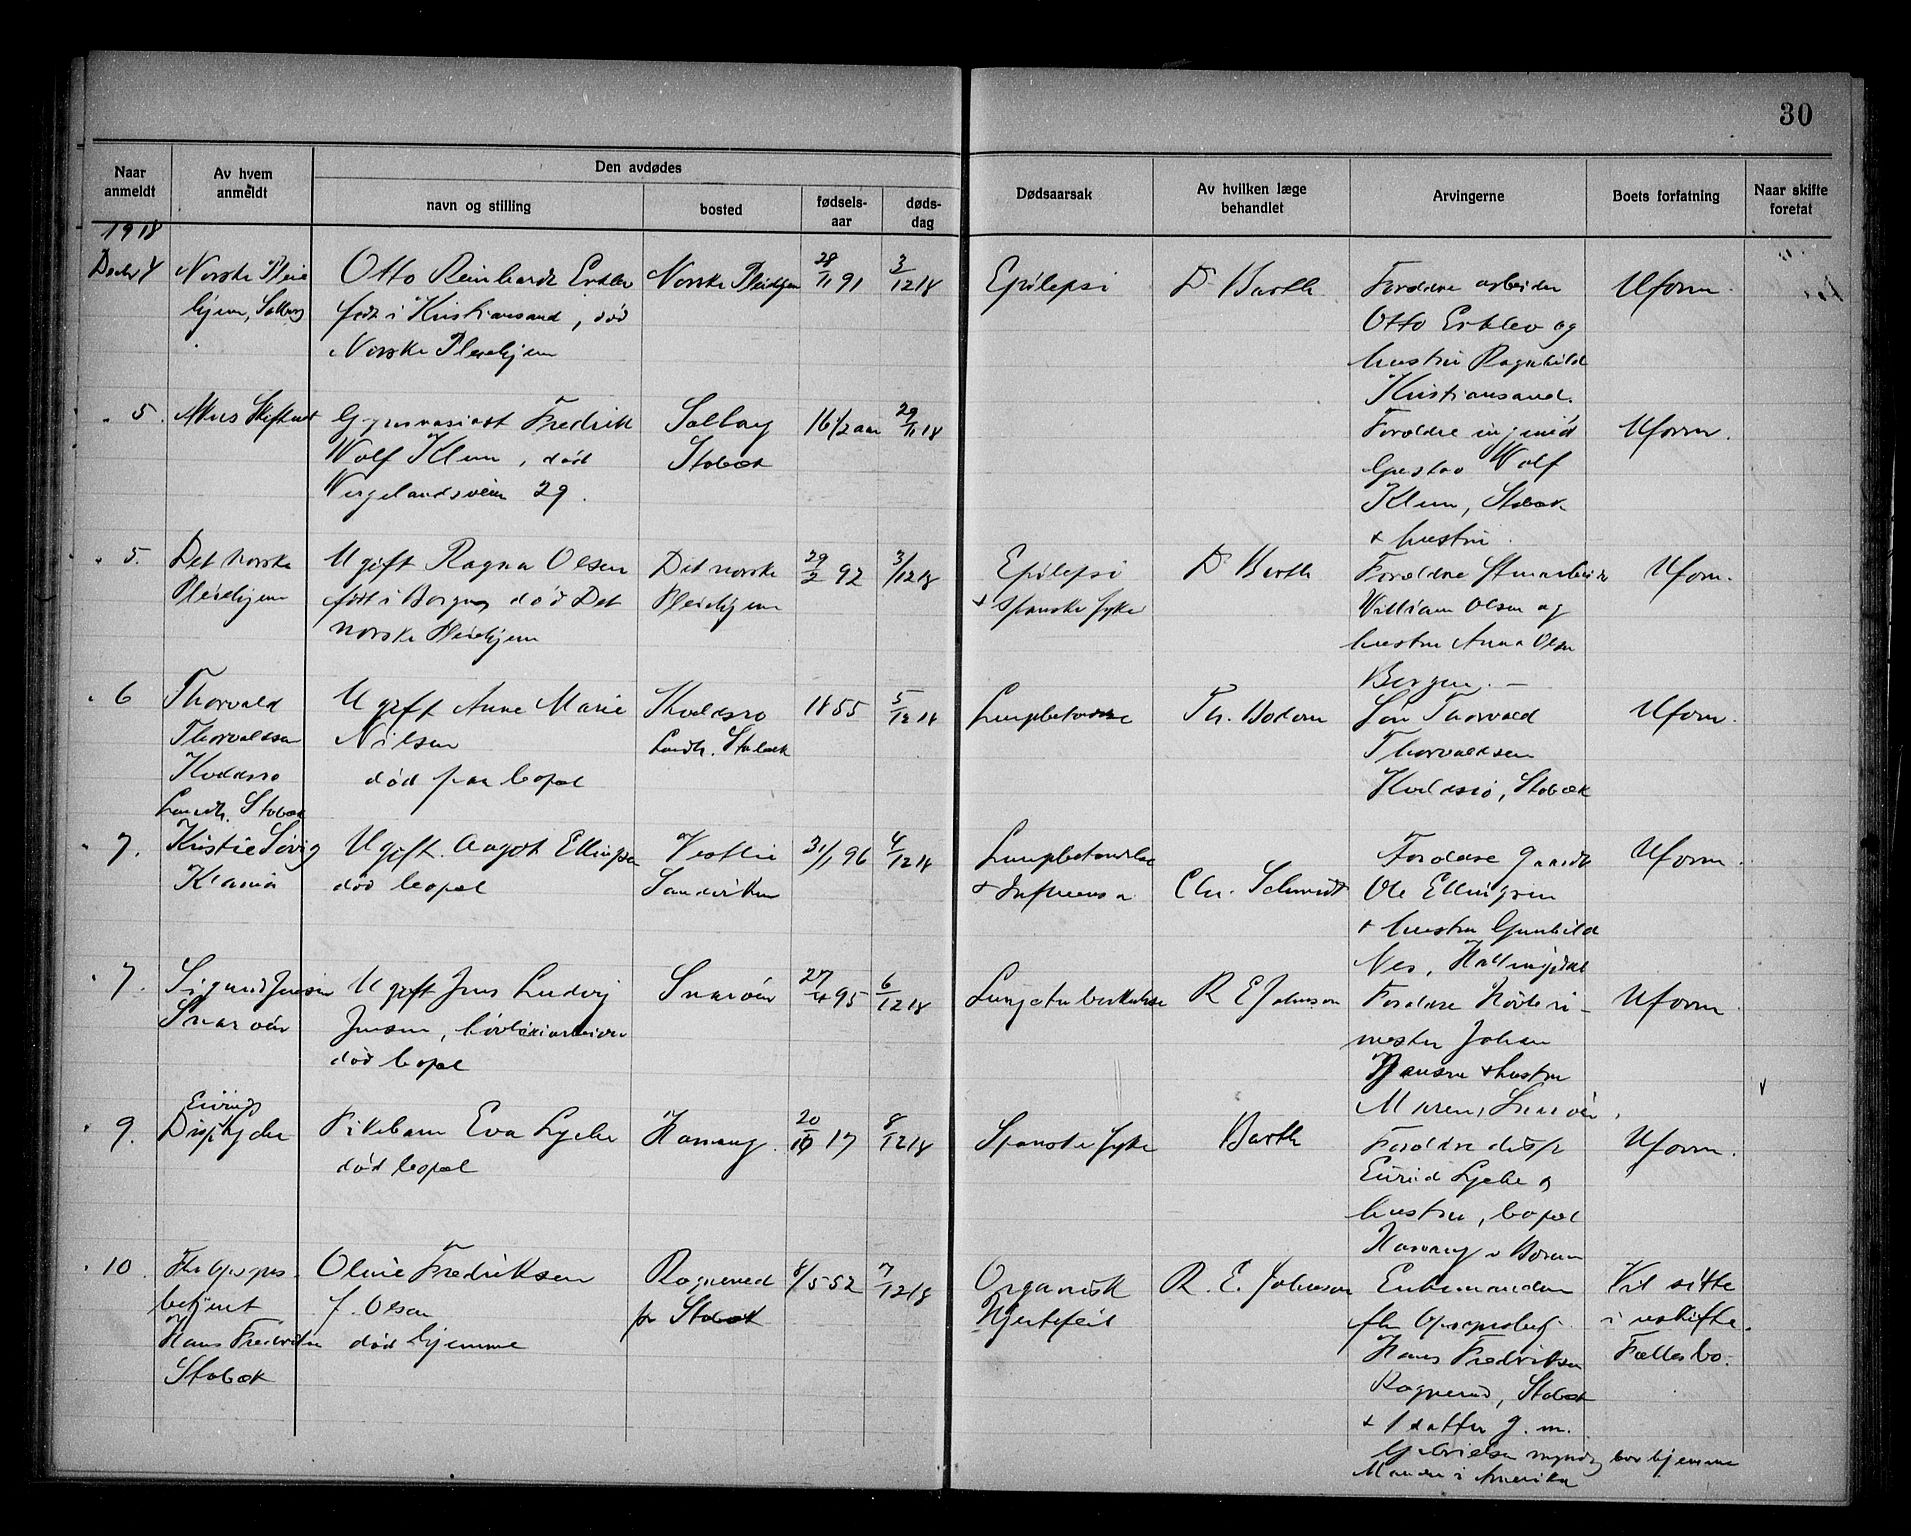 30
Naar anmeldt
Av hvem anmeldt
Den avdødes
navn og stilling
bosted
fødsels-aar
døds-dag
Dødsaarsak
Av hvilken læge behandlet
Arvingerne
Boets forfatning
Naar skifte foretat
1918
Decbr 4
Norske Pleie
hjem, Solberg
Otto Reinhardt
født i Kristiansand, død
Norske Pleiehjem
Norske Pleiehjem
28/11 91
3/12 18
Epilepsi
Dr Barth
Forældre arbeider
Otto og
hustru Ragnhild
Kristiansand.
Uform.
" 5
Gymnasiast Fredrik
Wolf Klem, død
Wergelandsveien 29.
Stabæk
16 1/2 aar
29/11 18
Forældre
Gustav Wolf
Klem, Stabæk
+ hustru.
Uform.
" 5.
Det norske
Pleiehjem
Ugift Ragna Olsen
født i Bergen, død Det
norske Pleiehjem
Det norske
Pleiehjem
29/2 92
3/12 18
Epilepsi
+ Spanske syke
Dr Barth
Forældre
William Olsen og
hustru Anna Olsen
Bergen. –
Uform.
" 6
Thorvald
Thorvaldsen
Stabæk
Ugift Anne Marie
Nilsen
død paa bopæl
Stabæk
1855
5/12 18
Lungebetændelse
Th. Bodom
Søn Thorvald
Thorvaldsen
Stabæk
Uform.
" 7.
K.ania
Ugift Aagot Ellingsen
død bopæl
Vestlie
Sandviken
31/1 96
4/12 18
Lungebetændelse
+ Influensa
Chr. Schmidt
Forældre gaardbr
Ole Ellingsen
+ hustru Gunhild
Nes, Hallingdal
Uform.
" 7.
Sigurd Jensen
Snarøen
Ugift Jens Ludvig
Jensen, høvleriarbeider
død bopæl
Snarøen
27/4 95
6/12 18
Lungetuberkulose
R E Johnson
Forældre høvleri-
mester Johan
Jensen + hustru
Maren, Snarøen.
Uform.
" 9.
Eivind
Disp. Lyche
Pikebarn Eva Lyche
død bopæl
20/10 17
8/12 18
Spanske syke
Barth
Forældre disp
Eivind Lyche og
hustru, bopæl
Uform.
" 10.
betjent
Hans Fredriksen
Stabæk
Oline Fredriksen
f. Olsen
død hjemme
Ragnerud
pr Stabæk
8/5 52
7/12 18
Organisk
Hjertefeil
R. E. Johnson
Enkemanden
Hans Fredriksen
Ragnerud, Stabæk
+ 1 datter g. m.
Gabrielsen myndig bor hjemme
Manden i Amerika
Vil sitte
i uskifte.
Fællesbo.